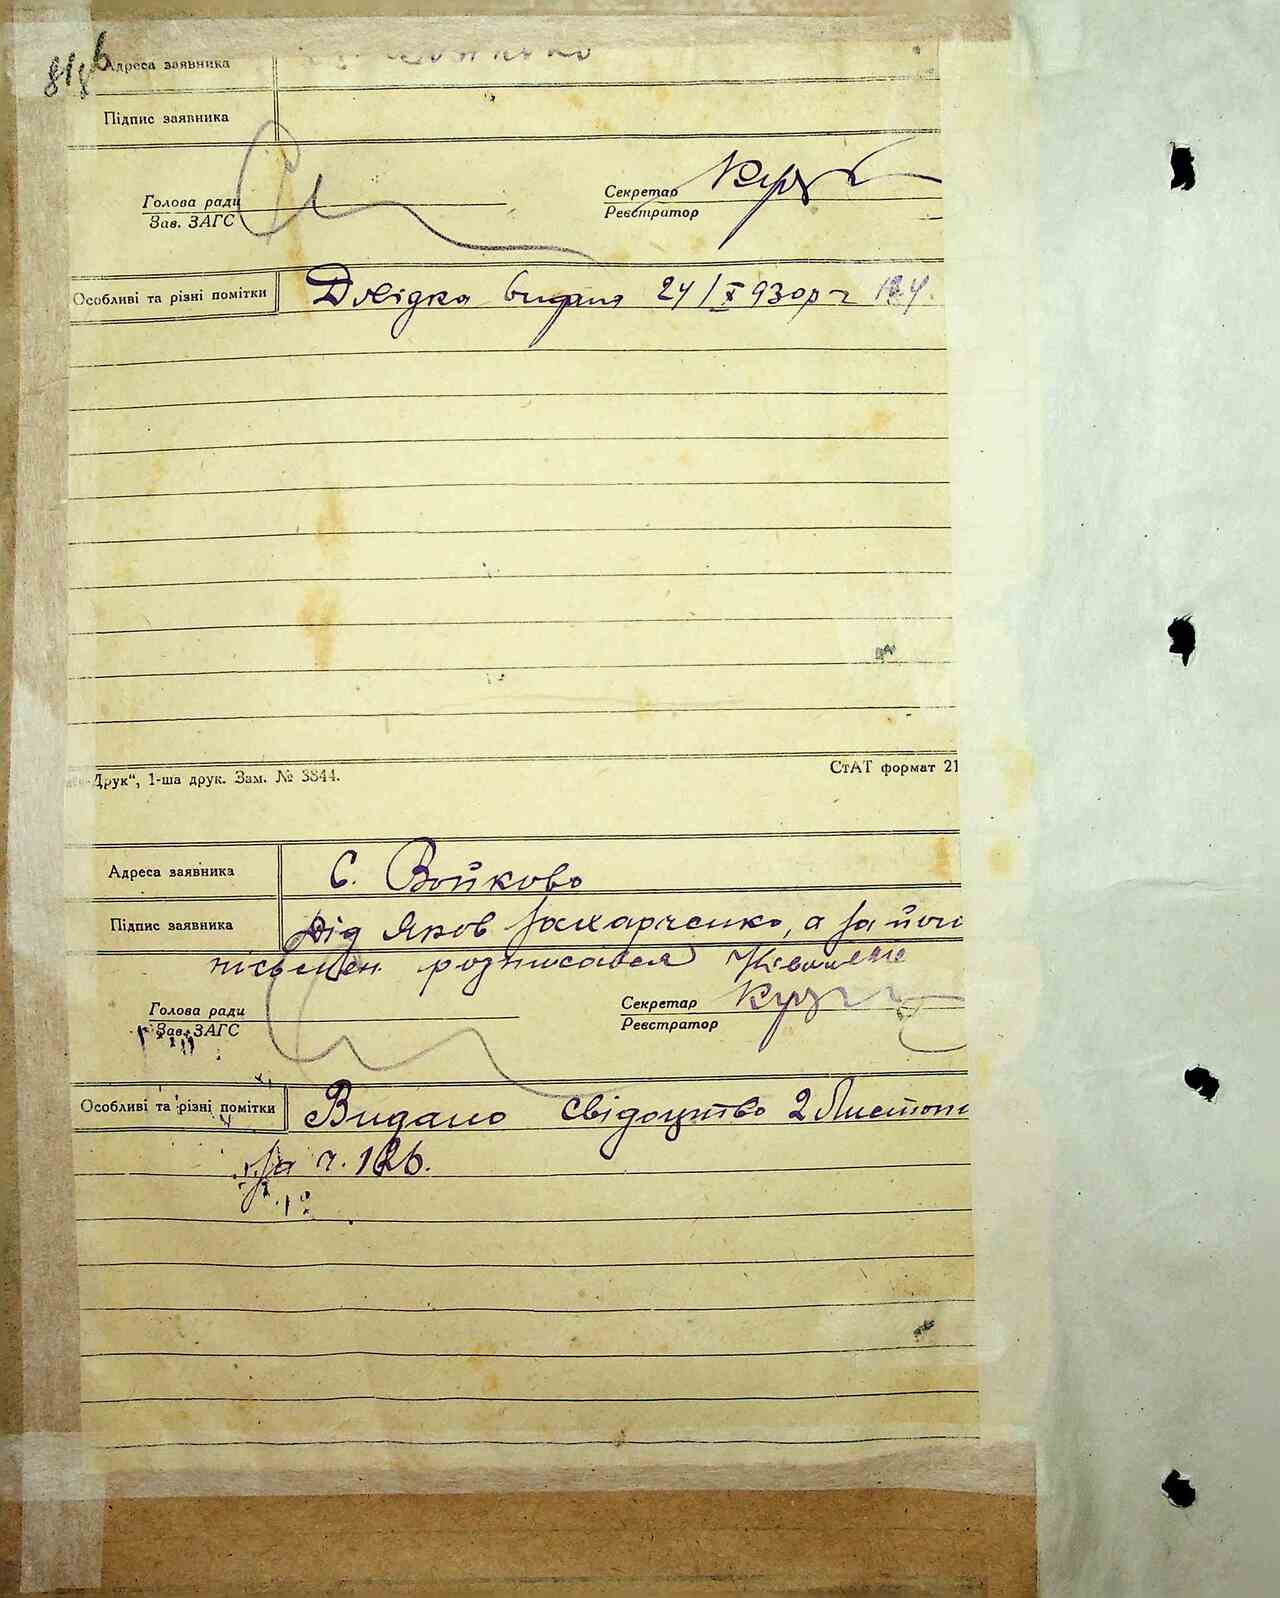 Адреса заявника
Підпис заявника
Голова ради
Зав. ЗАГС
Секретар
Реєстратор
Особливі та різні помітки Довідка видана 24/X 930р ч 124.
Друк“, 1-ша друк. Зам. № 3844.
СтАТ формат 21
Адреса заявника С. Войково
Підпис заявника Дід Яков Захарченко, а за
розписався
Голова ради
Зав. ЗАГС
Секретар
Реєстратор
Особливі та різні помітки Видано свідоцтво 2 Листопа
за ч. 126.